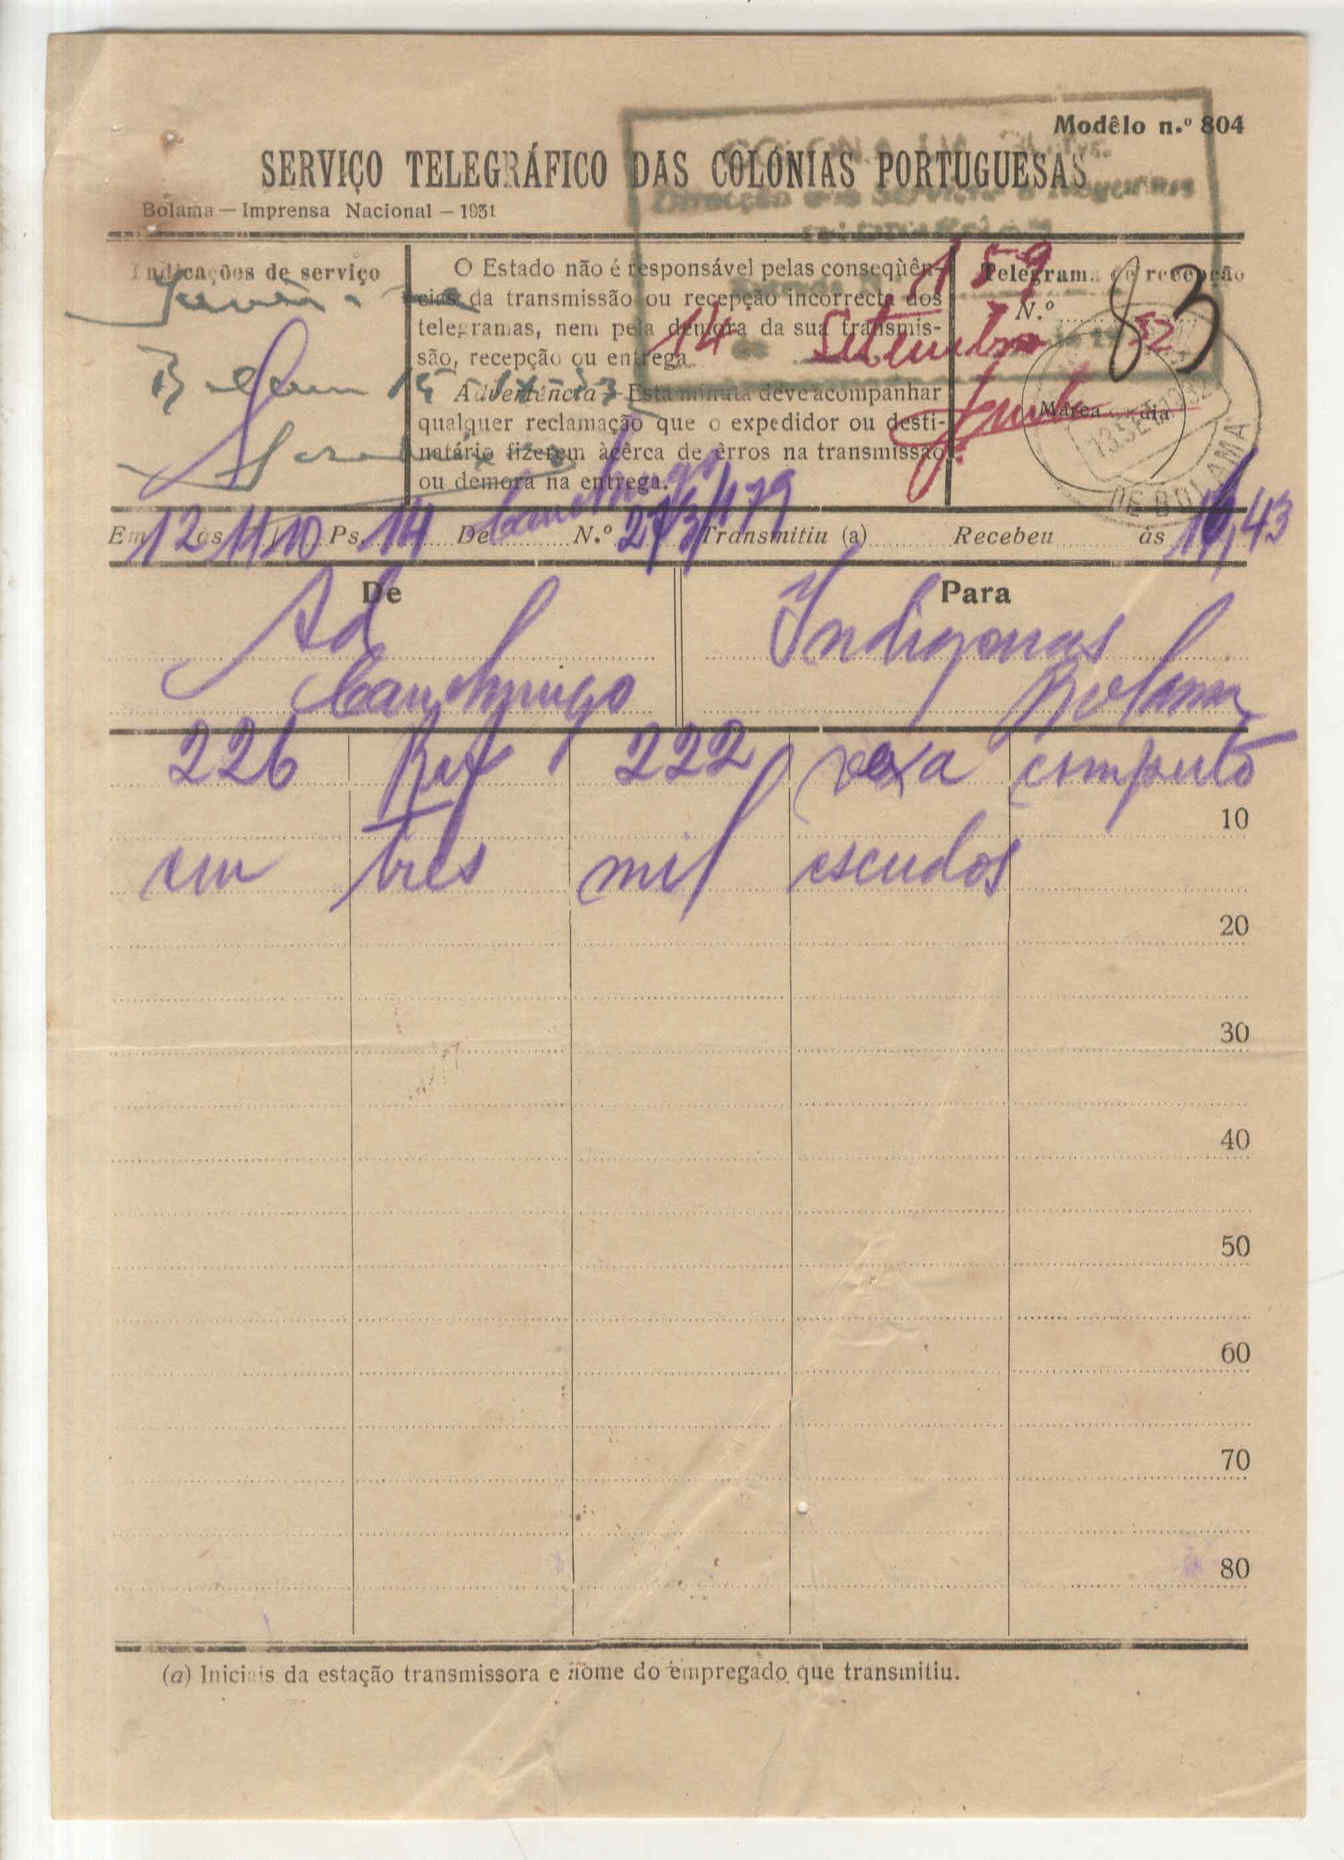 Modêlo n.º 804
SERVIÇO TELEGRÁFICO DAS COLÓNIAS PORTUGUESAS
Bolama — Imprensa Nacional — 1931
Direcção dos Serviços
Indicações de serviço
O Estado não é responsável pelas conseqüên-
cias da transmissão ou recepção incorrecta dos
telegramas, nem pela demora da sua transmis-
são, recepção ou entrega.
Advertência — Esta minuta deve acompanhar
qualquer reclamação que o expedidor ou desti-
natário fizerem àcêrca de èrros na transmissão
ou demora na entrega.
Telegrama de recepção
N.º 83
159
14 Setembro 32
Marca dia
13 SET 1932
DE BOLAMA
Em 12 às 11,10 Ps. 14 De Canchungo N.º Transmitiu (a) Recebeu ás 16,43
De
Para
Ad
Indigenas
Canchungo
Bolama
226 Ref 222 vexa computo
10
em tres mil escudos
20
30
40
50
60
70
80
(a) Iniciais da estação transmissora e nome do empregado que transmitiu.